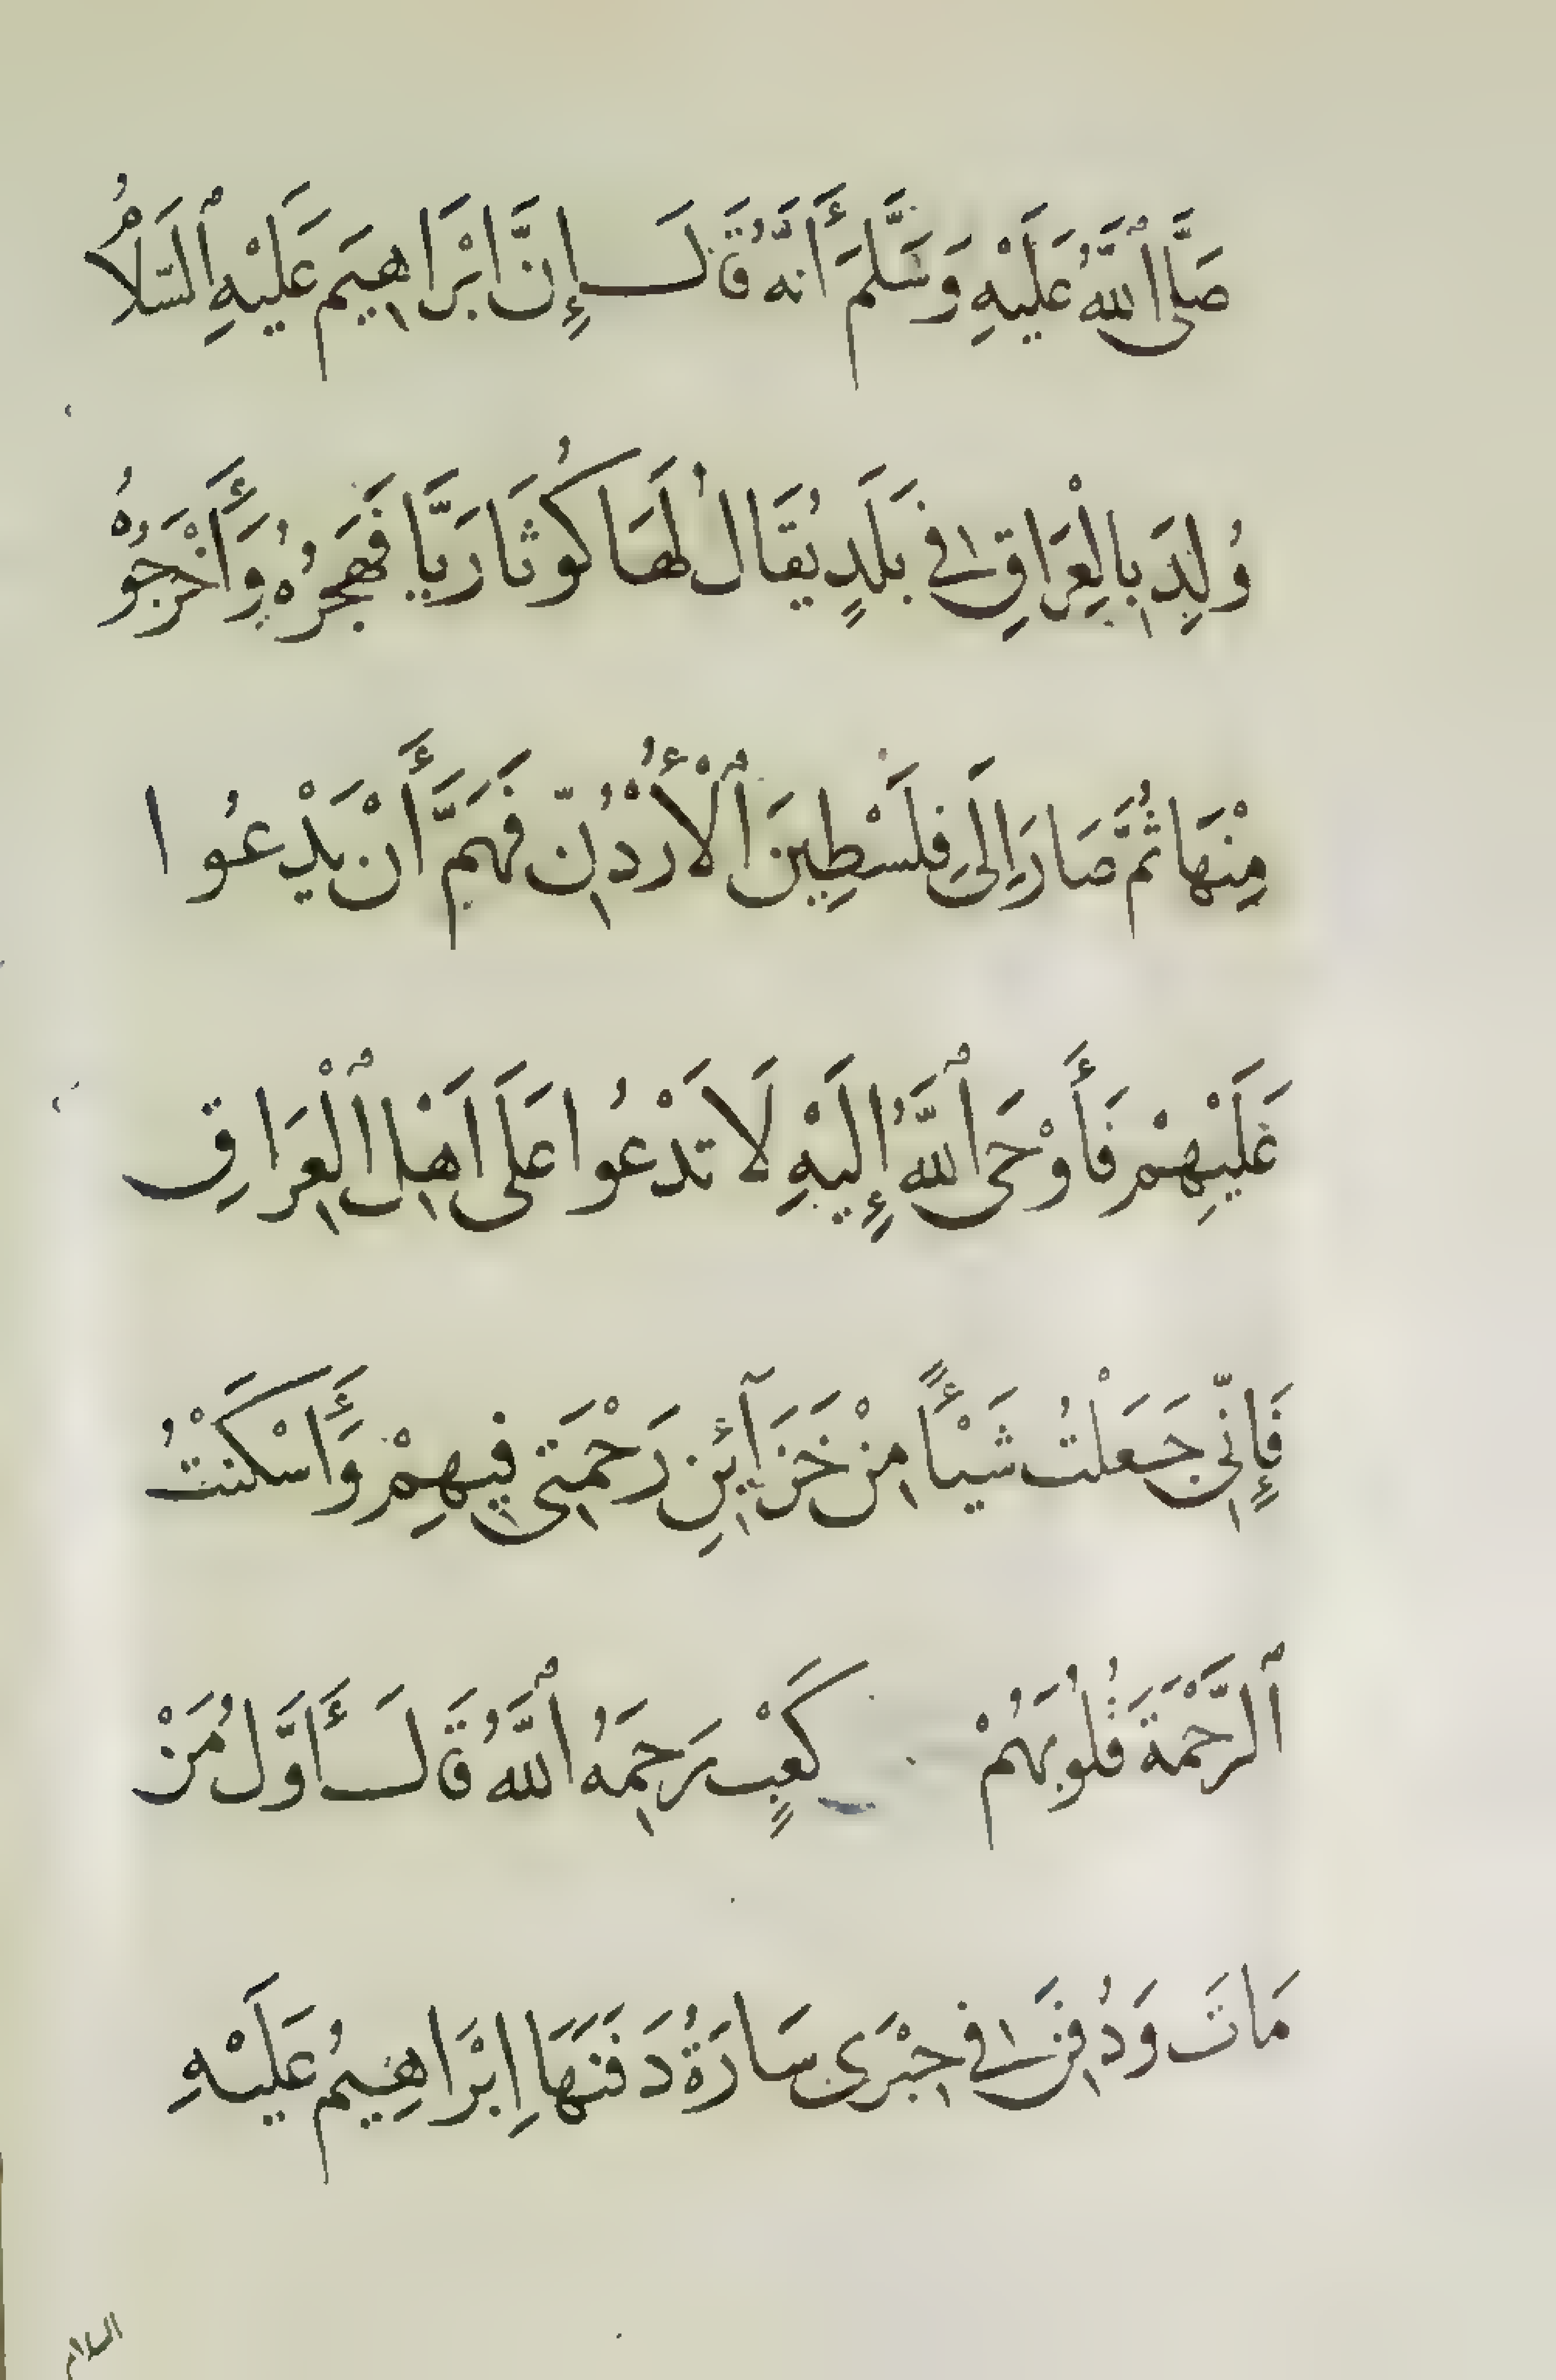 صَلَّى اللَّهُ عَلَيْهِ وَسَلَّمَ أَنَّهُ قَالَ إِنَّ ابْرَاهِيَم عَلَيْهِ ٱلسَّلَامُ
وُلِدَ بِالْعِرَاقِ فِي بَلَدٍ يُقَالُ لَهَا كُوثَا رَيَّا فَهَجَرُهُ وَأَخْرَجُوهُ
مِنْهَا ثُمَّ صَارَ إِلَى فِلَسْطِينَ ٱلْأُرْدُنِّ فَهَمَّ أَنْ يَدْعُوا
عَلَيْهِمْ فَأَوْحَى ٱللَّهُ إِلَيْهِ لَا تَدْعُوا عَلَى اَهْلِ ٱلْعِرَاقِ
فَإِنِّي جَعَلْتُ شَيْأً مِنْ خَزَآئِنِ رَحْمَتِي فِيهِمْ وَأَسْكَنْتُ
ٱلرَّحْمَةَ قُلُوبَهُمْ كَعْبٍ رَحِمَهُ ٱللَّهُ قَالَ أَوَّلُ مَنْ
مَاتَ وَدُفِنَ فِي حِبْرَى سَارَةُ دَفَنَهَا إِبْرَاهِيمُ عَلَيْهِ
السلام